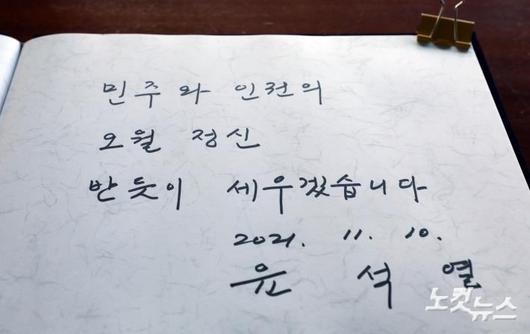 민주와 인권의
오월 정신
반듯이 세우겠습니다
2021. 11. 10.
윤 석 열
노컷뉴스